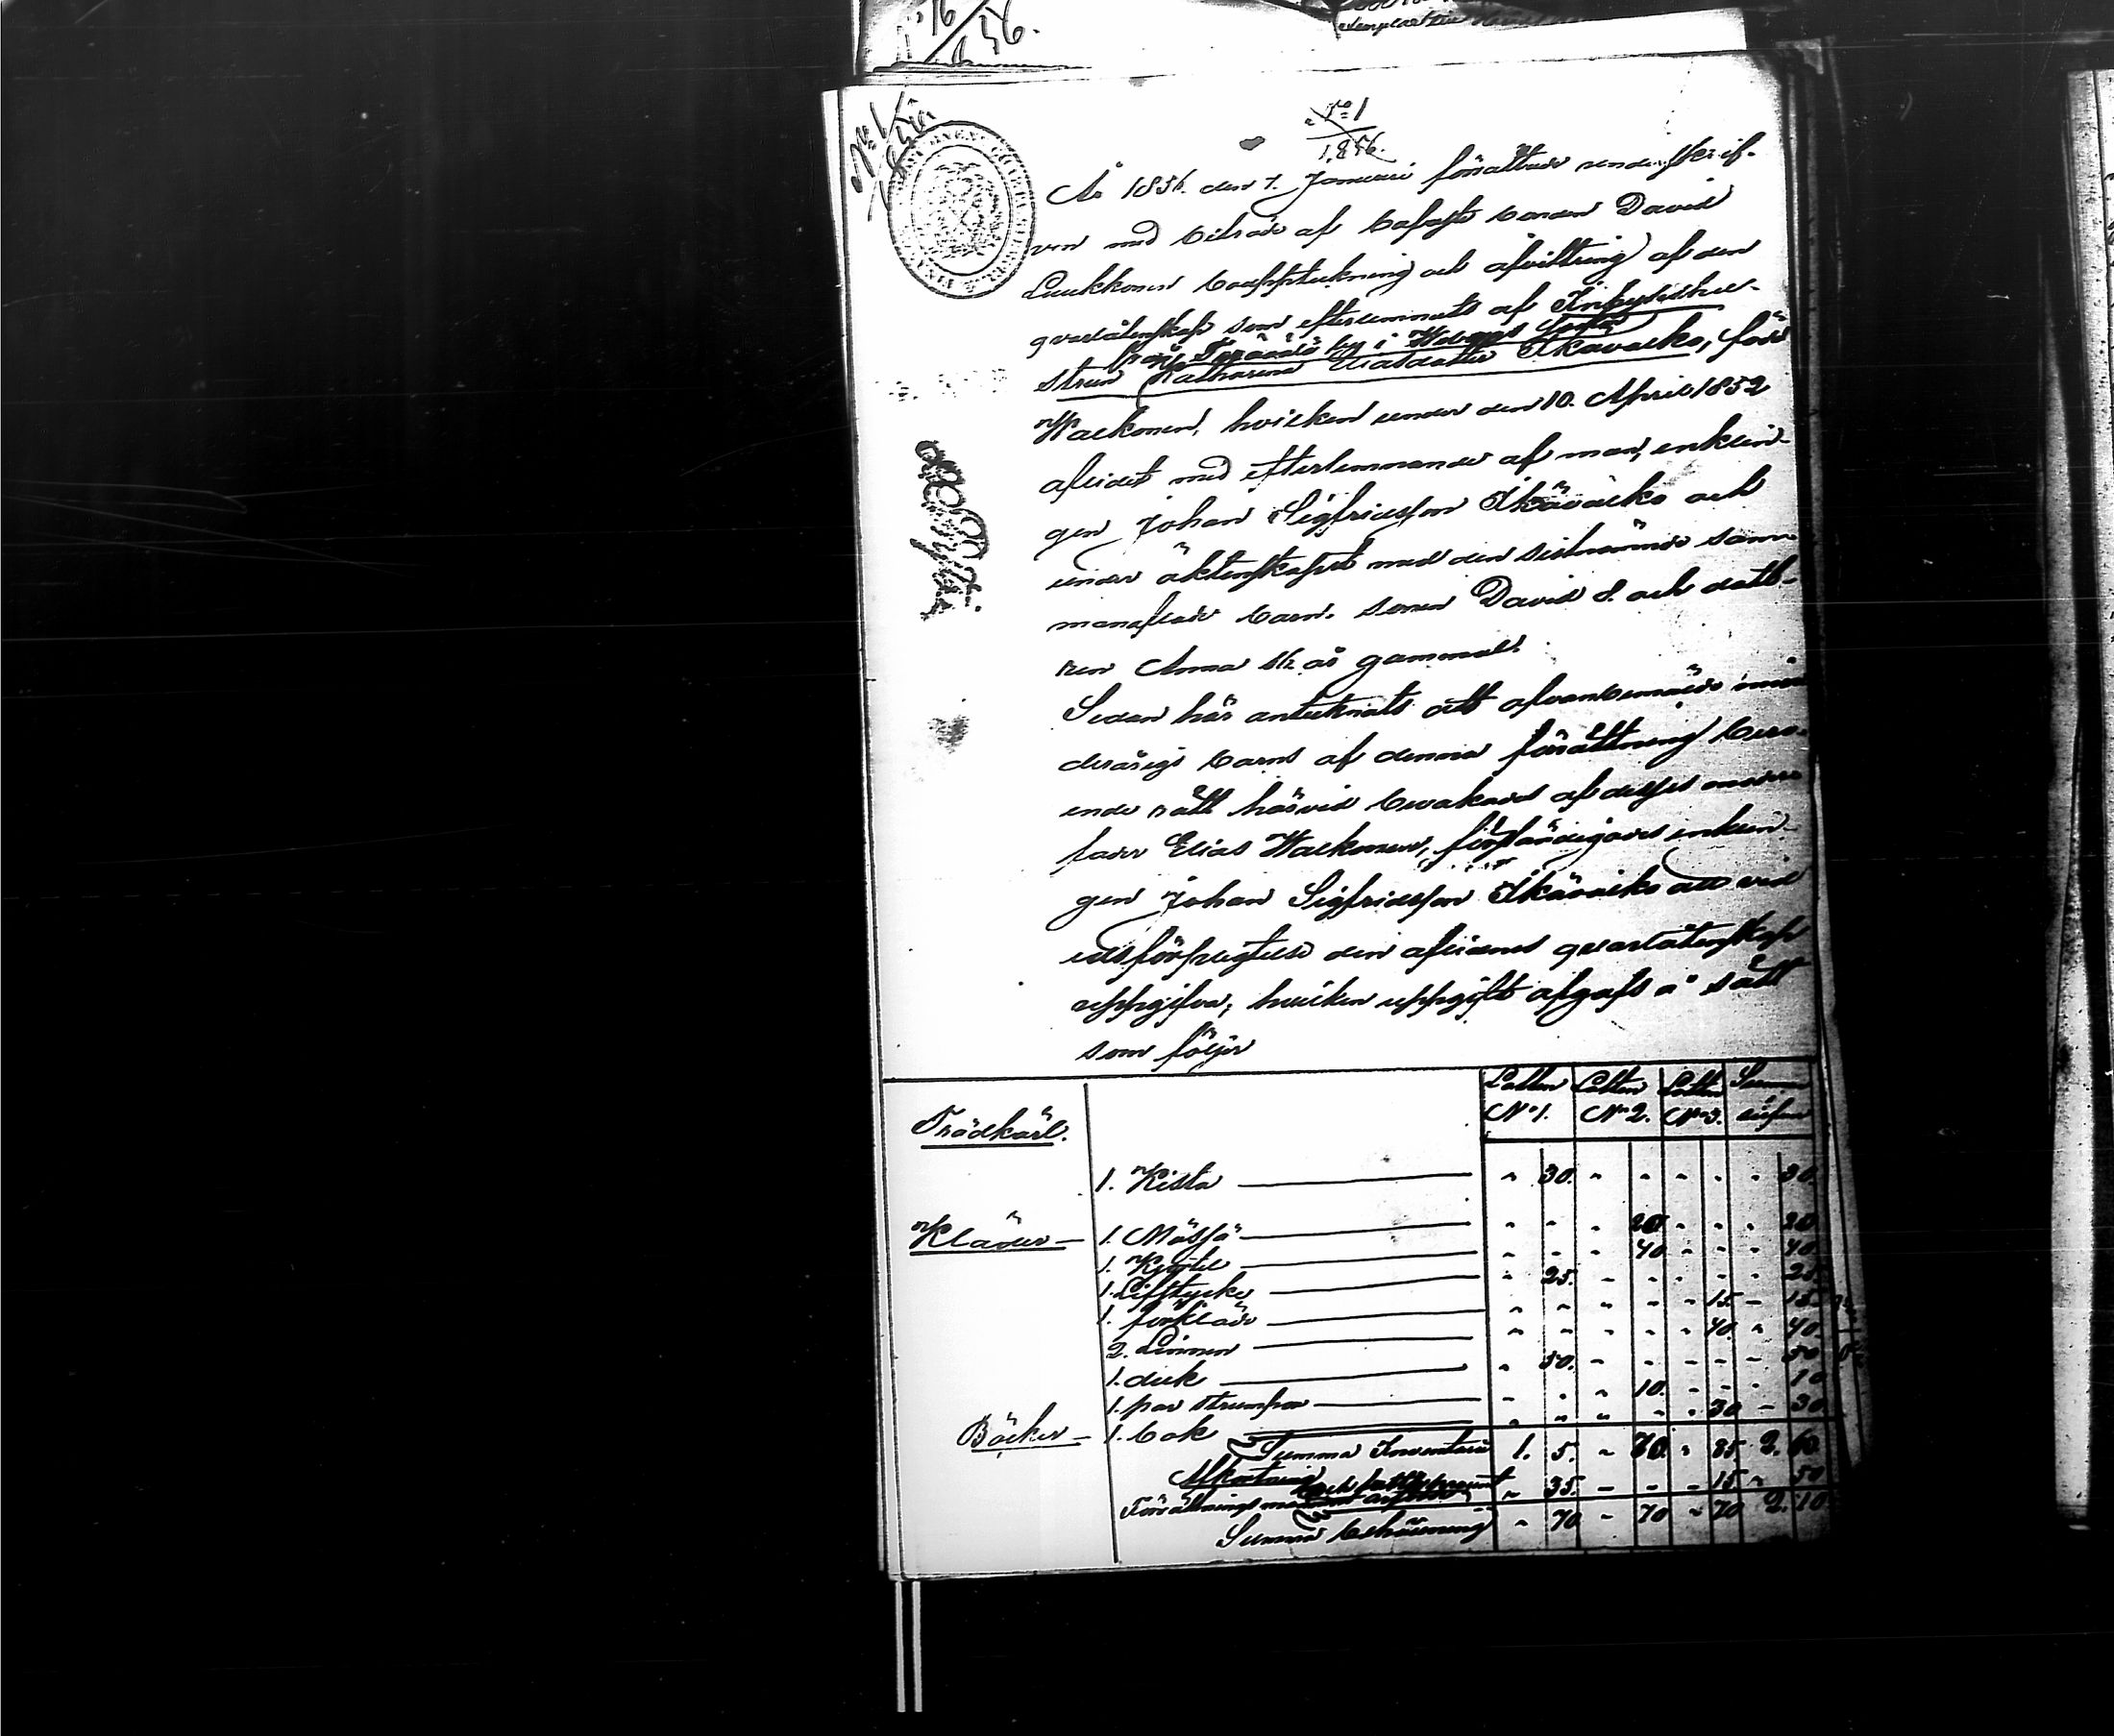 No 1
1856.
No 1
1856.
År 1856. den 7. Januari förrättade underskrif-
ven med biträde af bofaste bonden David
Luukkonen bouppteckning och afvittring af den
qvarlåtenskap som efterlemnats af Inhyseshu-
från by i
strun Katharina Eliasdotter Ikävalko, född
Walkonen, hvilken under den 10. April 1852
aflidit med efterlemnande af man, enklin-
gen Johan Sigfridsson Ikävalko och
under äktenskapet med den sistnämnde samm-
manaflade barn. sonen David 8. och dott-
ren Anna år gammal.
Sedan här antecknats att ofvanbemälde min-
deråriga barns af denna förrättning bero-
ende rätt härvid bevakades af desses moder-
fader Elias Walkonen, enklin-
gen Johan Sigfridsson Ikävalko att vid
edsförpligtelse den aflidnes qvarlåtenskap
uppgifva, hvilken uppgift afgafs å sätt
som följer
Lotten No 1. Lotten No 2. Lotten No 3. Summa
Trädkärl.
1. Kista " 30. - - - - - 30.
Kläder - 1. Mössa - - - 20 - - - 20
1. Kjortel - - - 40 - - - 40
1. Lifstycke " 25. - - - - - 25
1. förkläde - - - - - 15 - 15
2. Linnen " " " - - 40 " 40
1. duk " 50. - - - - - 50
1. par strumpor - - " 10. - - - 10
Böcker - 1. bok " " " - - 30 - 30
Summa Inventarii 1. 5. " 70. " 85 2. 60
Afkortning
Förrättnings " 35. - - - 15 " 50
Summa behållning " 70 - 70 - 70 2. 10